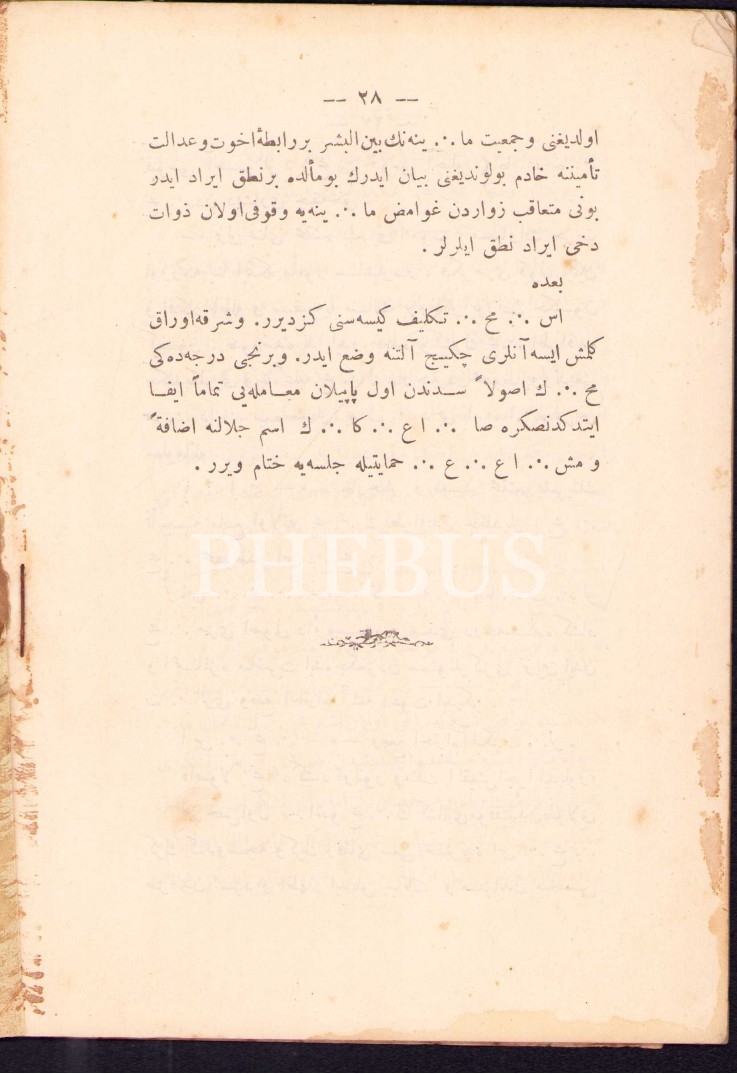 — ٢٨ —
اولدیغنی و جمعیت ما ∴ ینه‌نك بین‌البشر بر رابطهٔ اخوت و عدالت
تأمیننه خادم بولوندیغنی بیان ایدرك بو مألده بر نطق ایراد ایدر
بونی متعاقب زواردن غوامض ما ∴ ینه‌یه وقوفی اولان ذوات
دخی ایراد نطق ایلرلر .
بعده
اس ∴ مح ∴ تكلیف كیسه‌سنی كزدیرر . و شرقه اوراق
كلمش ایسه آنلری چكییج آلتنه وضع ایدر . و برنجی درجه‌ده‌كی
مح ∴ ك اصولاً سدندن اول یاپیلان معامله‌یی تماماً ایفا
ایتدكدنصكره صا ∴ ا ع ∴ كا ∴ ك اسم جلالنه اضافةً
و مش ∴ ا ع ∴ ع ∴ حمایتیله جلسه‌یه ختام ویرر .
PHEBUS